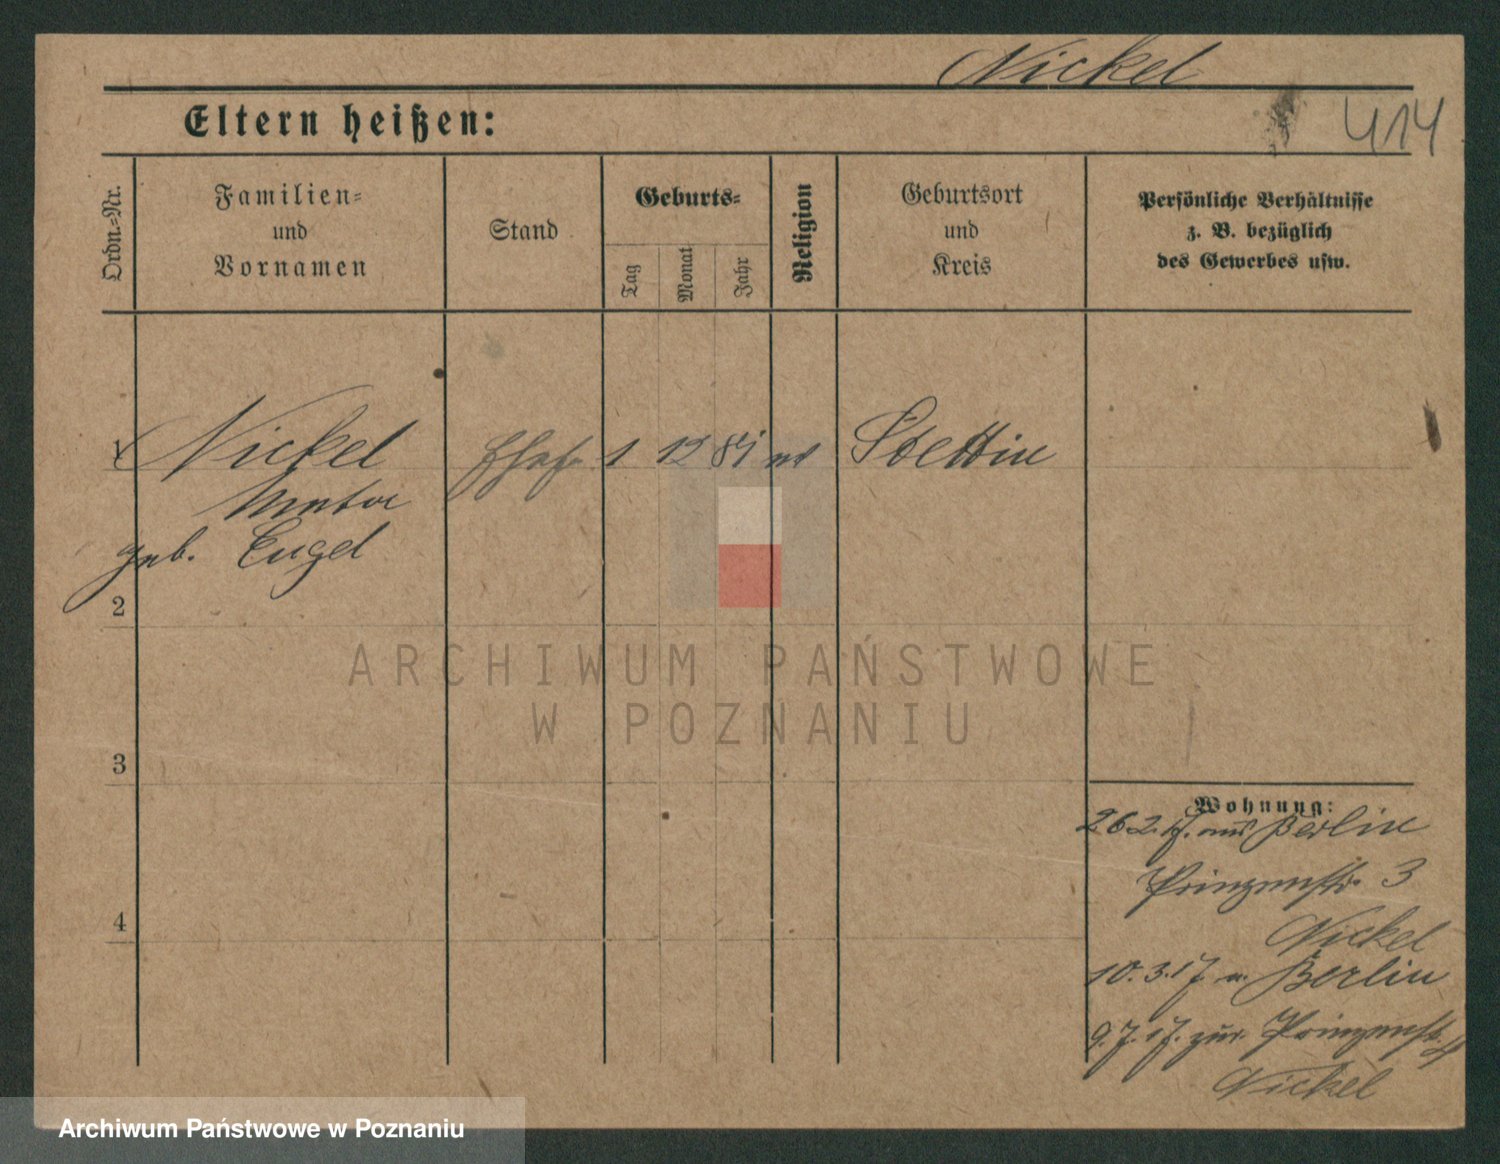 Nickel
414
Eltern heißen:
Ordn.-Nr.
Familien-
und
Vornamen
Stand
Geburts-
Tag
Monat
Jahr
Religion
Geburtsort
und
Kreis
Persönliche Verhältnisse
z. B. bezüglich
des Gewerbes usw.
1 Nickel 1 12 81 Stettin
geb. Engel
2
3
4
Wohnung:
26.2.17. aus Berlin
Prinzenstr. 3
Nickel
10.3.17 n. Berlin
9.7.17. zur. Prinzenstr. 4
Nickel
ARCHIWUM PAŃSTWOWE
W POZNANIU
Archiwum Państwowe w Poznaniu